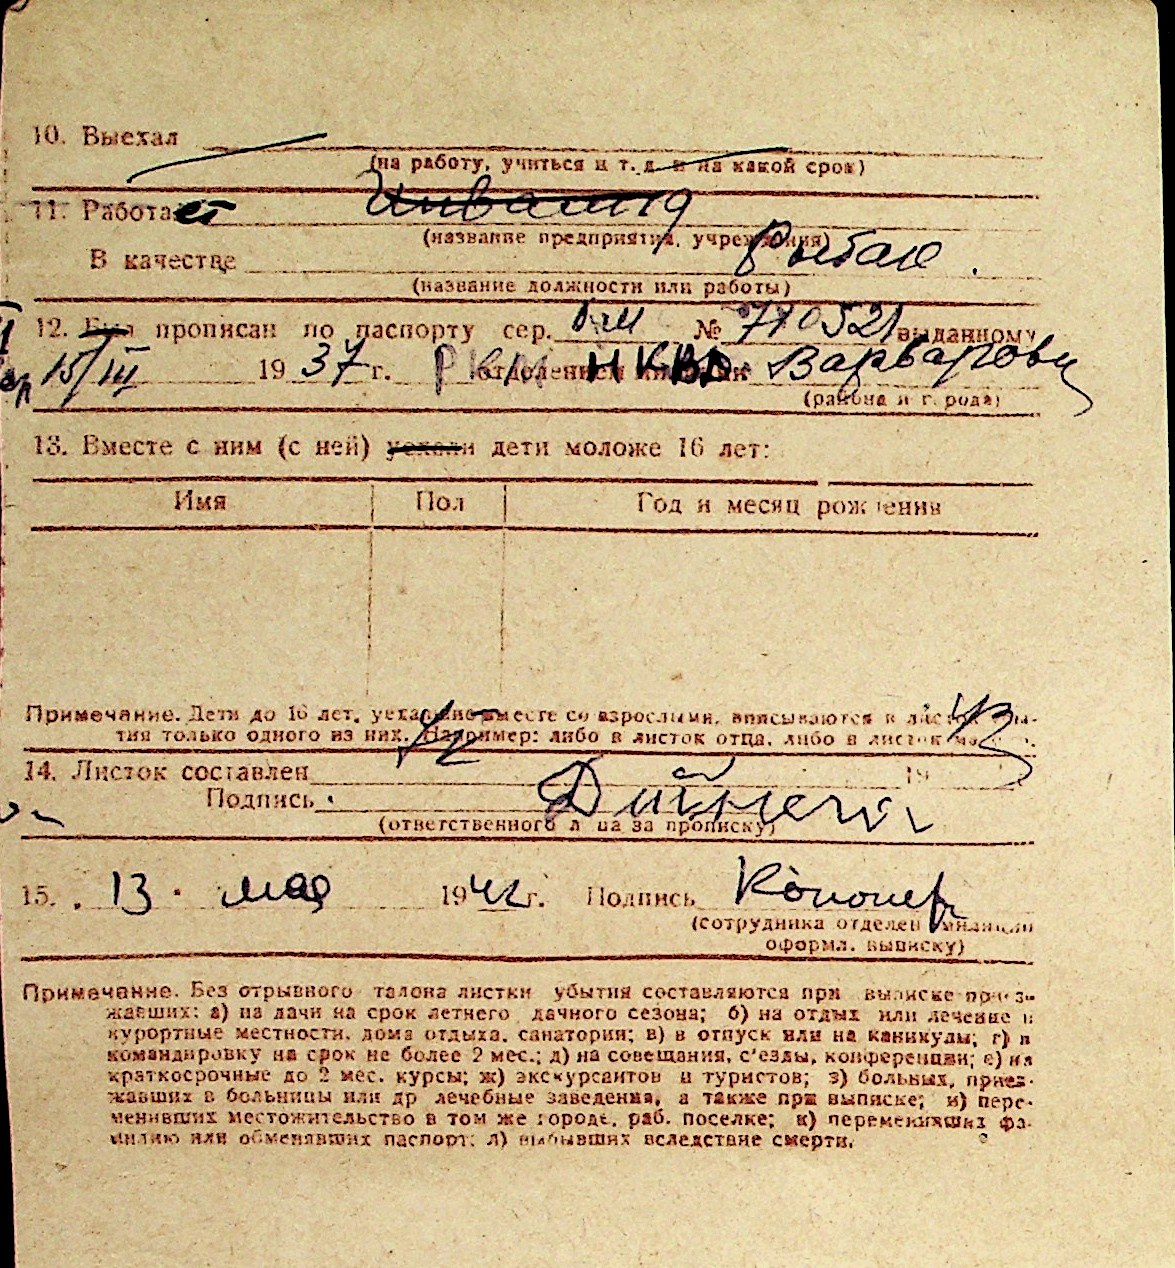 10. Выехал
(на работу, учиться и т. д. и на какой срок)
11. Работает Инвалид
(название предприятия, учреждения)
В качестве Рыбак.
(название должности или работы)
12. Был прописан по паспорту сер. № 770521 выданному
15/III 1937 г. РКМ НКВД Варваровк
(района и города)
13. Вместе с ним (с ней) уехали дети моложе 16 лет:
Имя Пол Год и месяц рождения
Примечание. Дети до 16 лет, уехавшие вместе со взрослыми, вписываются в листок убы-
тия только одного из них. Например: либо в листок отца, либо в листок матери.
14. Листок составлен 19
Подпись
(ответственного лица за прописку)
15. 13. мая 1942 г. Подпись
(сотрудника отделен. милиции
оформл. выписку)
Примечание. Без отрывного талона листки убытия составляются при выписке приез-
жавших: а) на дачи на срок летнего дачного сезона; б) на отдых или лечение в
курортные местности, дома отдыха, санатории; в) в отпуск или на каникулы; г) в
командировку на срок не более 2 мес.; д) на совещания, с'езды, конференции; е) на
краткосрочные до 2 мес. курсы; ж) экскурсантов и туристов; з) больных, приез-
жавших в больницы или др лечебные заведения, а также при выписке; и) пере-
менивших местожительство в том же городе, раб. поселке; к) переменивших фа-
милию или обменявших паспорт; л) выбывших вследствие смерти.